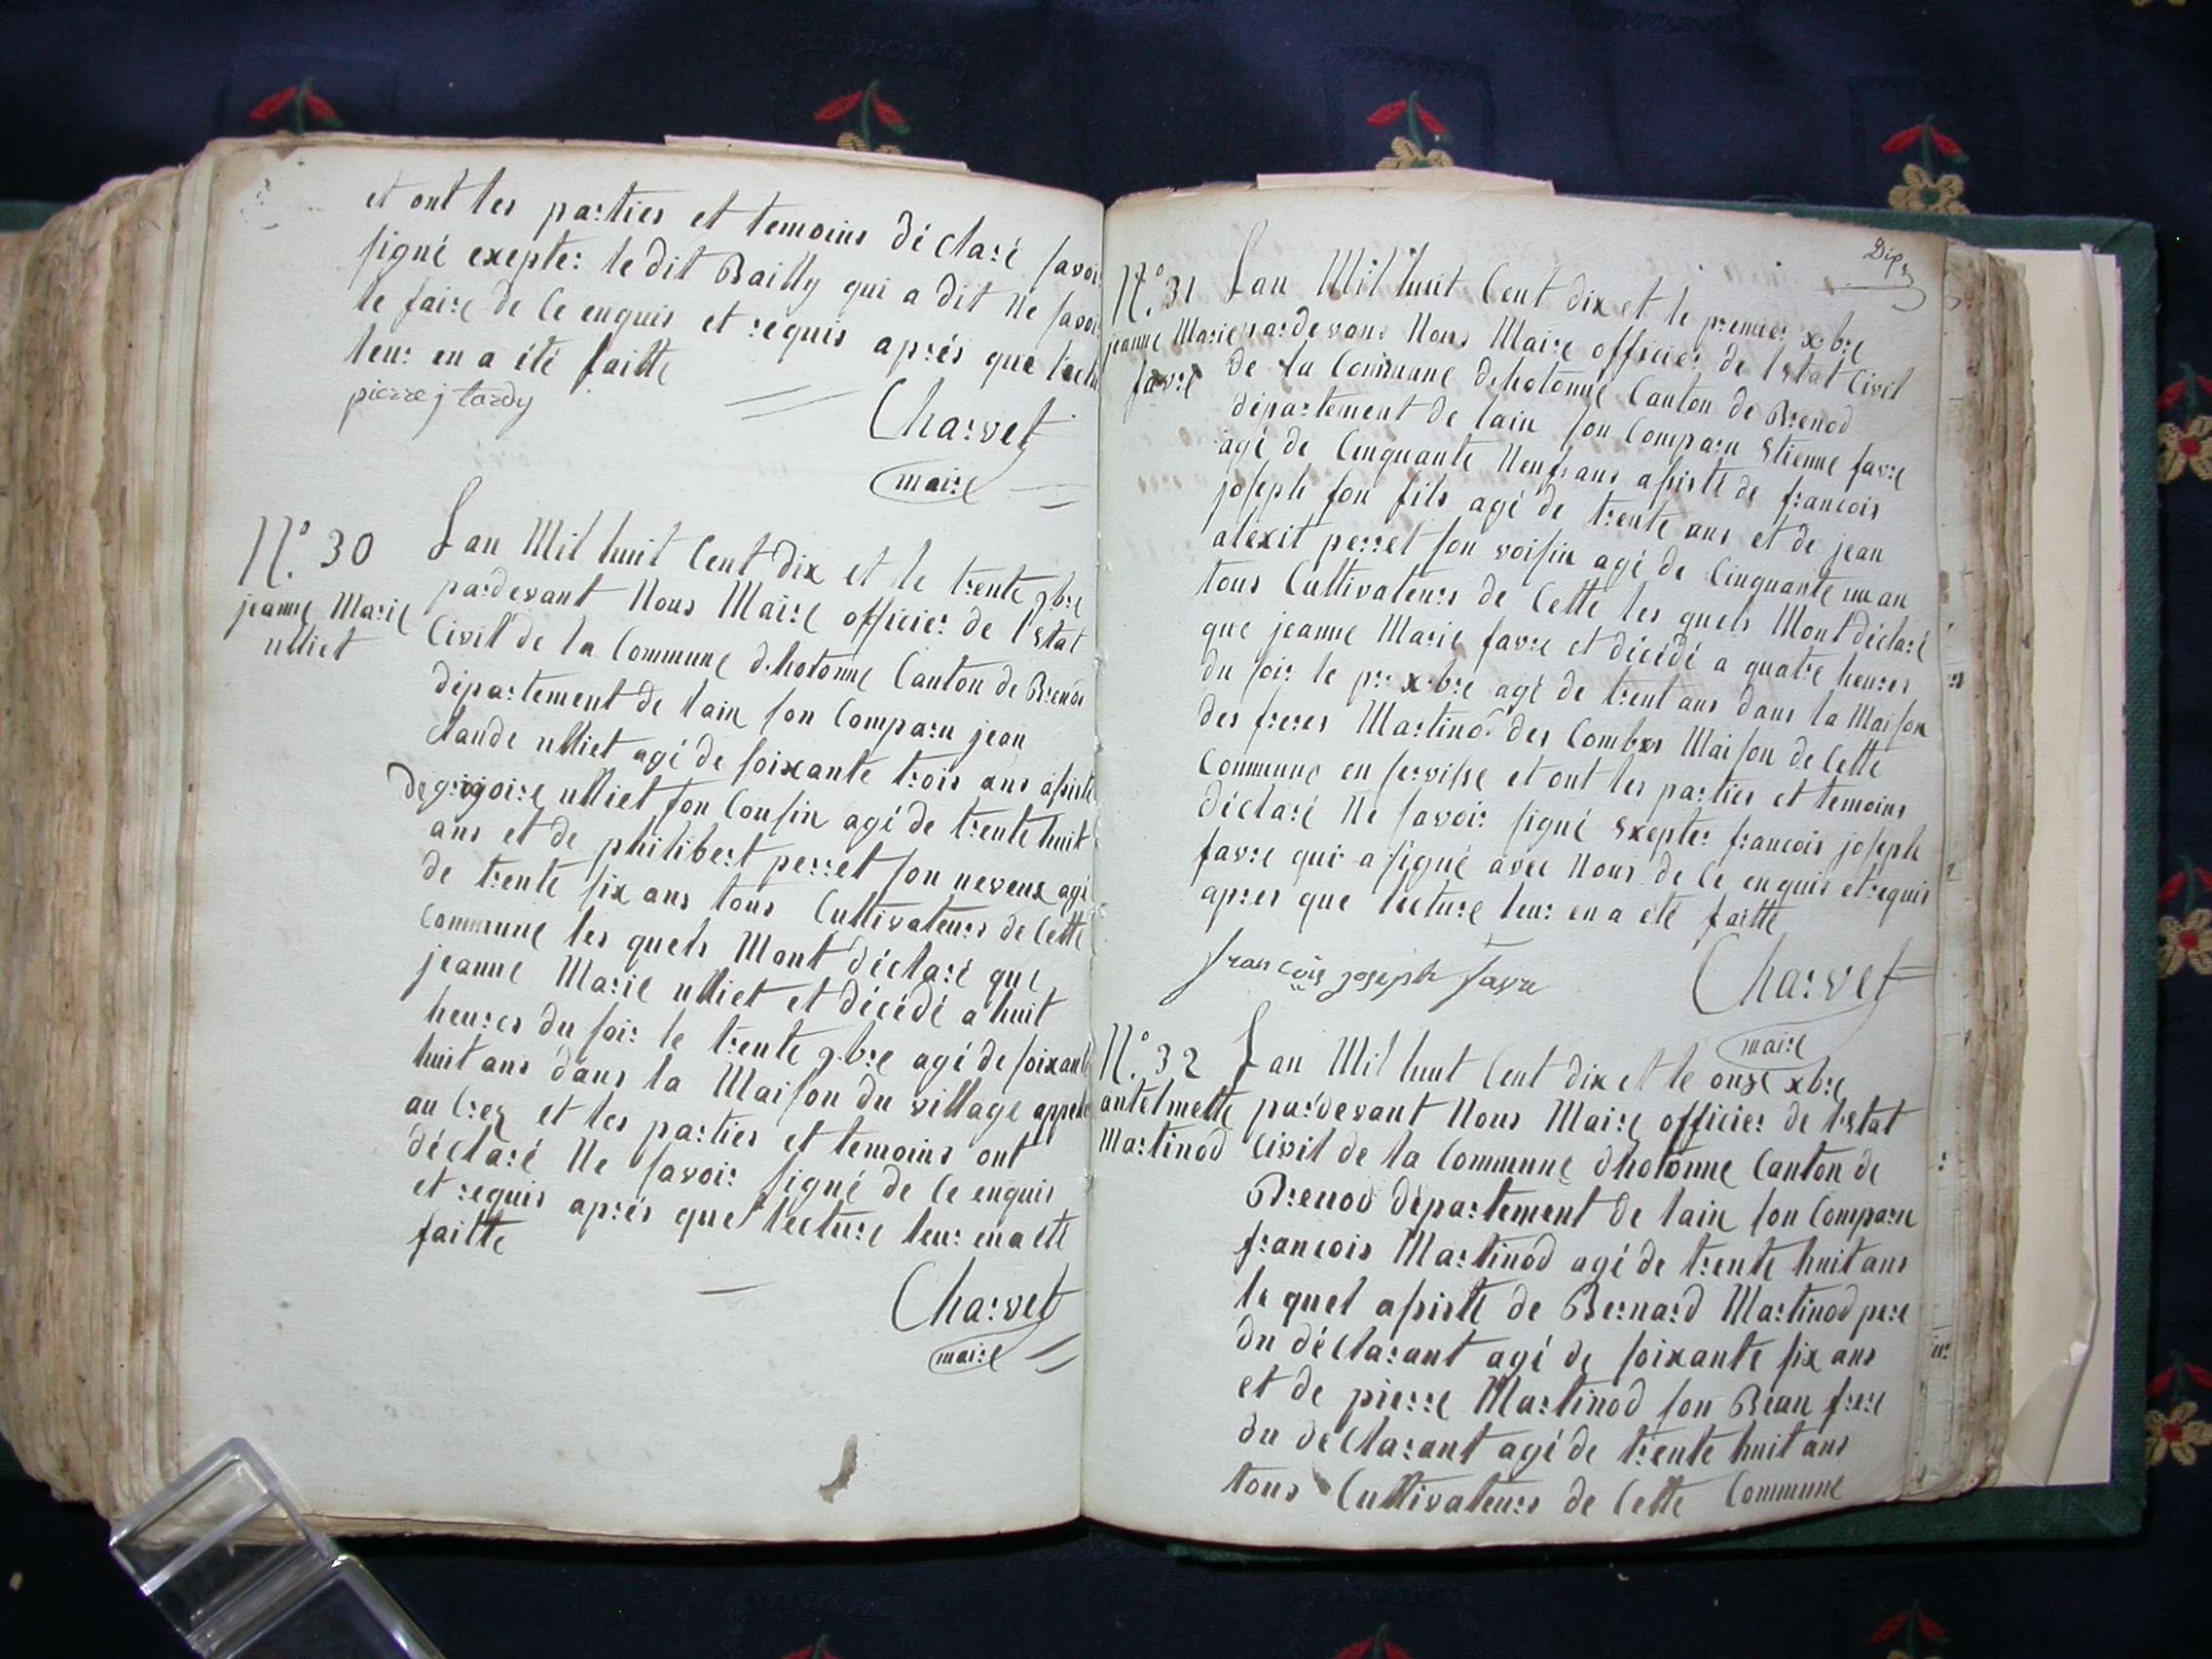 et ont les parties et temoins déclaré savoir
signé exepter le dit Bailly qui a dit ne savoir
le faire de ce enquis et requis aprés que lectu
leur en a été faitte
pierre j tardy
Charvet
maire
N.o 30
jeanne Marie
ulliet
Lan Mil huit Cent dix et le trente 9bre
pardevant Nous Maire officier de l'Etat
Civil de la Commune dhotonne Canton de Brenod
département de lain son Comparu jean
Claude ulliet agé de soixante trois ans assisté
de grigoire ulliet son Cousin agé de trente huit
ans et de philibert perret son neveux agé
de trente six ans tous Cultivateurs de Cette
Commune les quels Mont déclaré que
jeanne Marie ulliet et décédé a huit
heures du soir le trente 9.bre agé de soixante
huit ans dans la Maison du village appelé
au Crez et les parties et temoins ont
déclaré Ne savoir signé de ce enquis
et requis aprés que lecture leur en a eté
faitte
Charvet
maire
N.o 31
jeanne Marie
favre
Lan Mil huit Cent dix et le premier xbre
pardevant Nous Maire officier de lEtat Civil
de la Commune dehotonne Canton de Brenod
département de lain son Comparu Etienne favre
agé de Cinquante Neuf ans assisté de francois
joseph son fils agé de trente ans et de jean
alexit perret son voisin agé de Cinquante un an
tous Cultivateurs de Cette les quels Mont déclaré
que jeanne Marie favre et décédé a quatre heures
du soir le pr xbre agé de trent ans dans la Maison
des freres Martinod des Combes Maison de Cette
Commune en servisse et ont les parties et temoins
déclaré Ne savoir signé Exepter francois joseph
favre qui a signé avec Nous de Ce enquis et requis
apres que lecture leur en a eté faitte
françois joseph favre
Charvet
maire
N.o 32
antelmette
Martinod
Lan Mil huit Cent dix et le onze xbre
pardevant Nous Maire officier de lEtat
Civil de la Commune dhotonne Canton de
Brenod département de lain son Comparu
francois Martinod agé de trente huit ans
le quel assisté de Bernard Martinod pere
du déclarant agé de soixante six ans
et de pierre Martinod son Beau frere
du déclarant agé de trente huit ans
tous Cultivateurs de Cette Commune